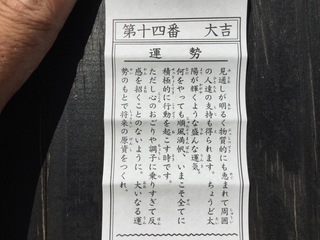 第十四番　大吉
運勢
見通しが明るく物質的にも恵まれて周囲
の人達の支持も得られます。ちょうど太
陽が輝くような盛んな運気。
何をやっても順風満帆、いまこそ全てに
積極的に行動を起こす時です。
ただし心のおごりや調子に乗りすぎて反
感を招くことのないように。大いなる運
勢のもとで将来の原資をつくれ。